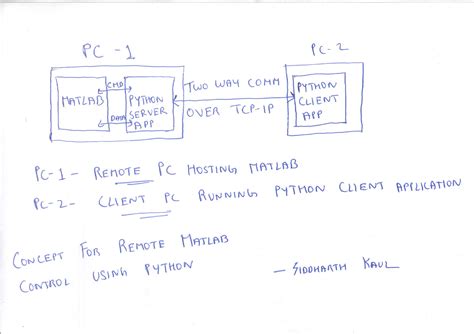 PC - 1
PC-2
MATLAB
CMD
DATA
PYTHON
SERVER
APP
TWO WAY COMM
OVER TCP-IP
PYTHON
CLIENT
APP
PC-1 - REMOTE PC HOSTING MATLAB
PC-2- CLIENT PC RUNNING PYTHON CLIENT APPLICATION
CONCEPT FOR REMOTE MATLAB
CONTROL USING PYTHON
- SIDDHARTH KAUL